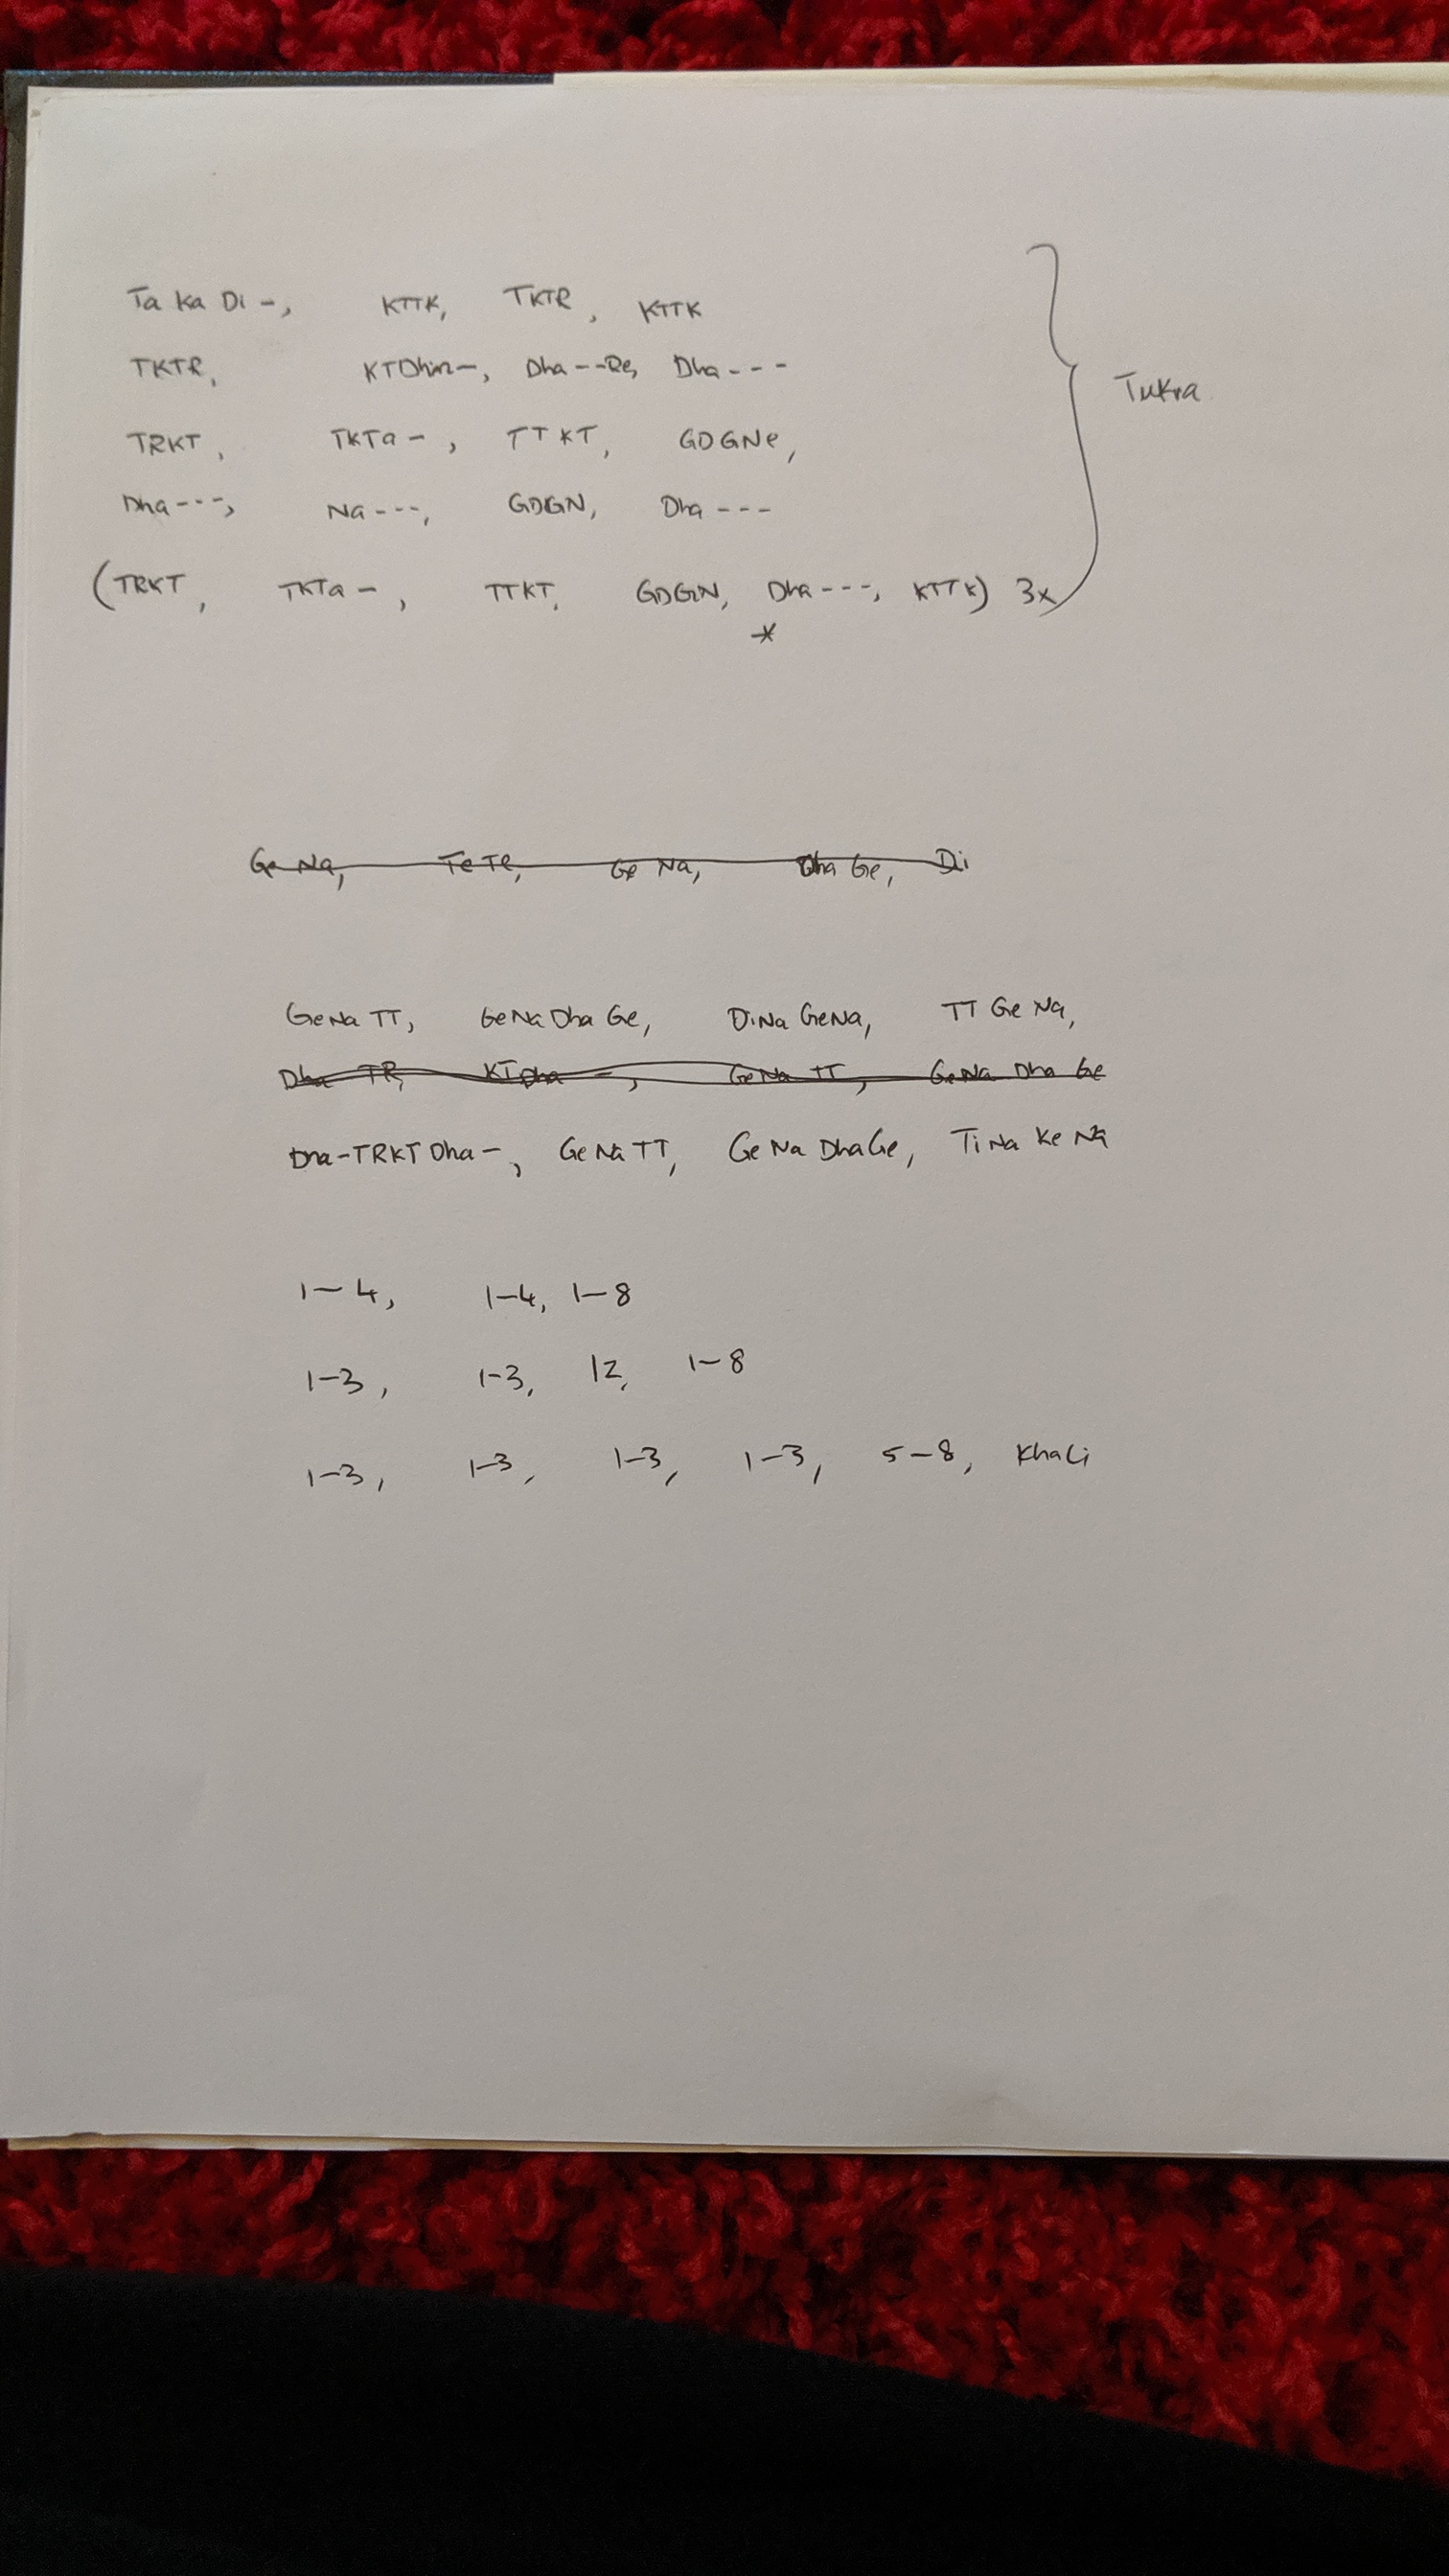 Ta Ka Di -, KTTK, TKTR, KTTK
TKTR, KTDhin-, Dha--Re, Dha---
Tukra
TRKT, TKTa-, TTKT, GDGNe,
Dha---, Na---, GDGN, Dha---
(TRKT, TKTa-, TTKT, GDGN, Dha---, KTTK) 3x
*
Ge Na, TeTe, Ge Na, Dha Ge, Di
GeNa TT, GeNa Dha Ge, DiNa GeNa, TT Ge Na,
Dha TR, KT Dha -, GeNa TT, GeNa Dha Ge
Dha-TRKT Dha-, GeNa TT, Ge Na DhaGe, TiNa Ke Na
1-4, 1-4, 1-8
1-3, 1-3, 12, 1-8
1-3, 1-3, 1-3, 1-3, 5-8, Khali